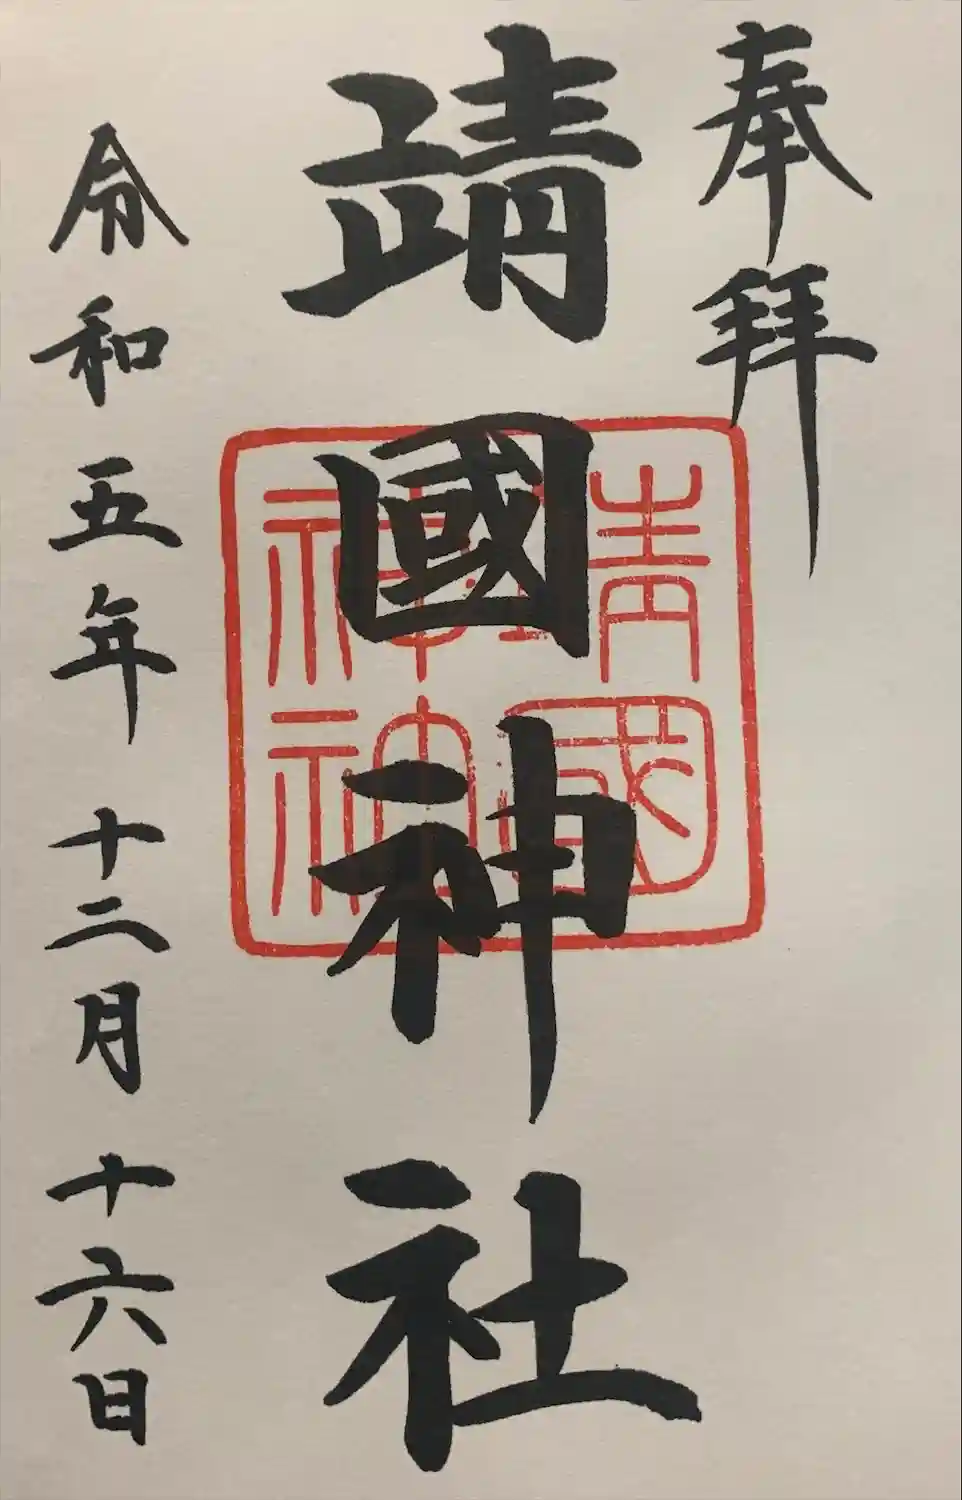 奉拜
靖國神社
靖國
神社
令和五年十二月十六日